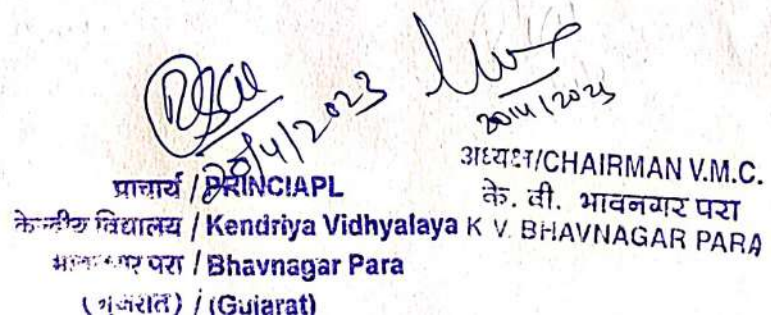 20/4/2023
20/4/2023
प्राचार्य / PRINCIAPL
केन्द्रीय विद्यालय / Kendriya Vidhyalaya
भावनगर परा / Bhavnagar Para
(गुजरात) / (Gujarat)
अध्यक्ष/CHAIRMAN V.M.C.
के. वी. भावनगर परा
K V. BHAVNAGAR PARA